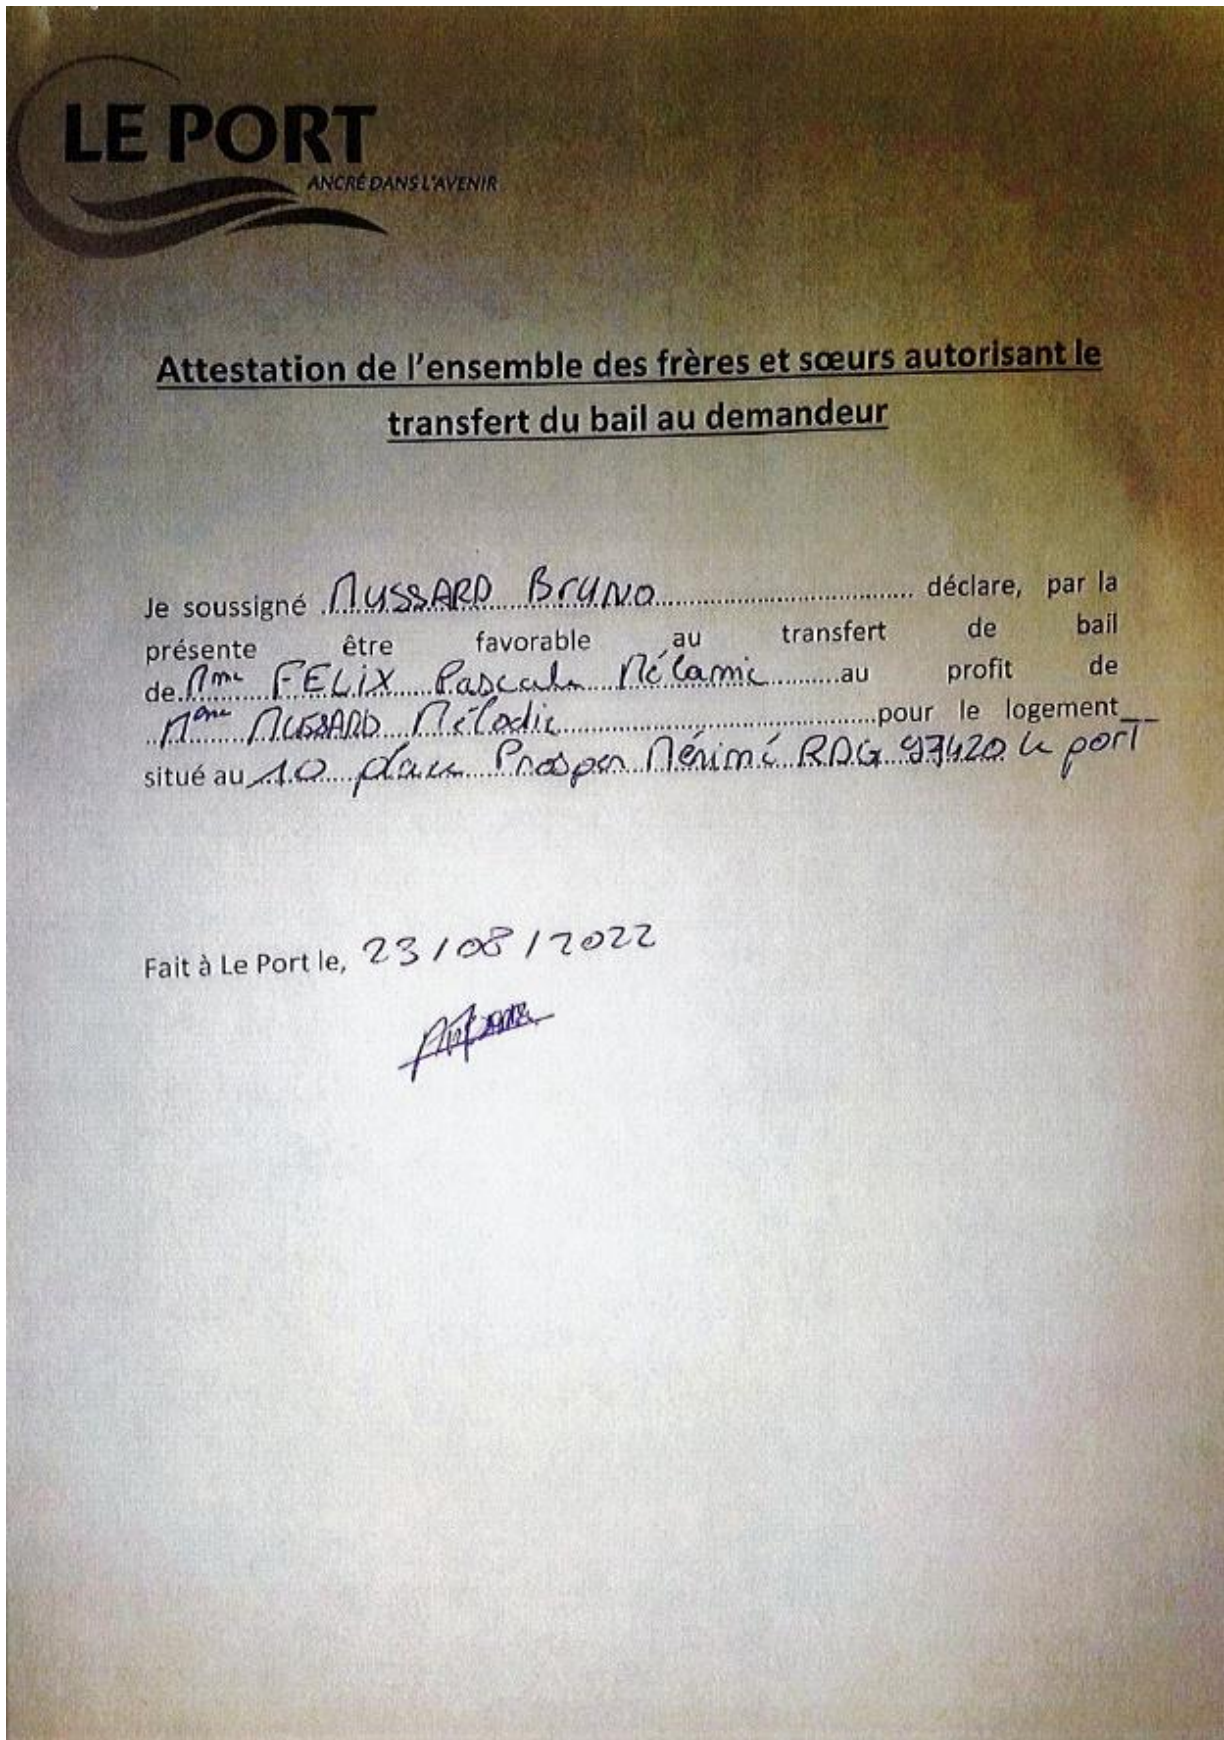 LE PORT
ANCRÉ DANS L'AVENIR
Attestation de l'ensemble des frères et sœurs autorisant le
transfert du bail au demandeur
Je soussigné MUSSARD BRUNO déclare, par la
présente être favorable au transfert de bail
de Mme FELIX Pascale Mélanie au profit de
Mme MUSSARD Mélodie pour le logement
situé au 10 place Prosper Mérimé RDG 97420 Le port
Fait à Le Port le, 23/08/2022